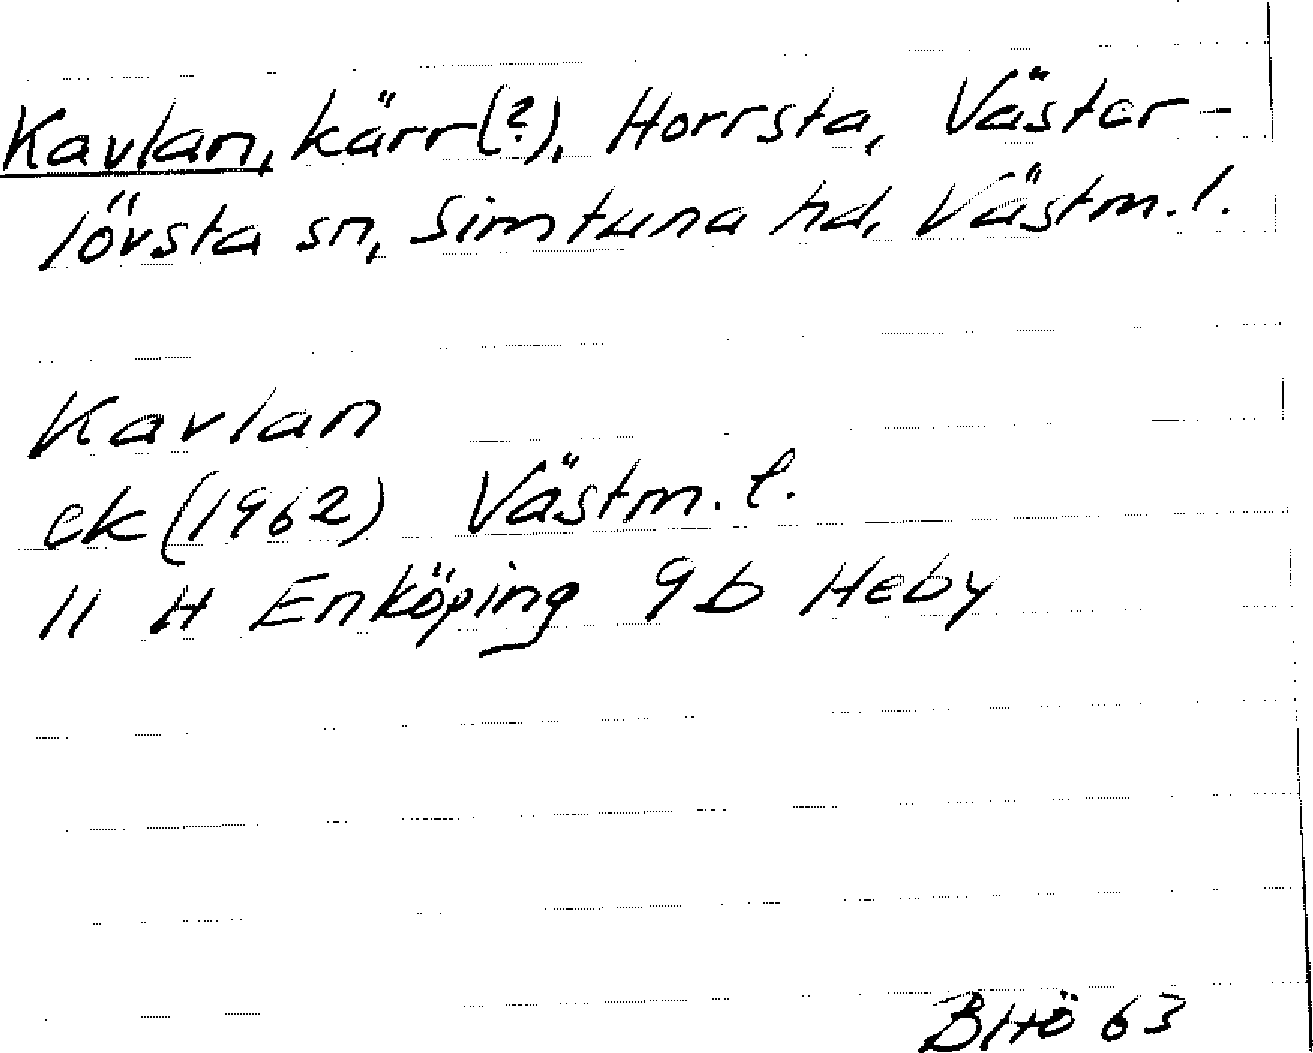 Kavlan, kärr(?), Horrsta, Väster-
lövsta sn, Simtuna hd, Västm. l.
Kavlan
ek (1962) Västm. l.
11 H Enköping 9b Heby
BHÖ 63